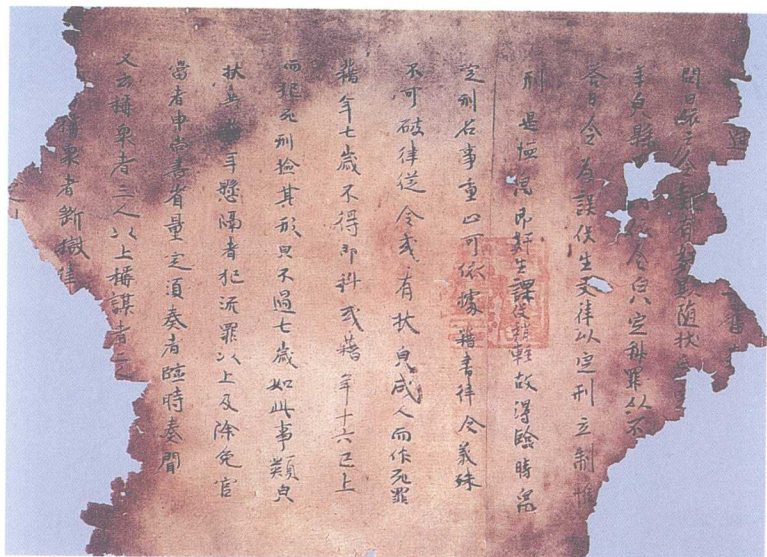 問曰依令疑有奸欺隨狀
年皃懸令皃定科罪以不
答曰令為課役生文律以定刑立制惟
刑是恤皃即奸生課役稍輕故得臨時皃
定刑名事重止可依據籍書律令義殊
不可破律從令或有狀皃成人而作死罪
籍年七歲不得即科或籍年十六已上
而犯死刑撿其形皃不過七歲如此事類皃
狀共年懸隔者犯流罪以上及除免官
當者申尚書省量定須奏者臨時奏聞
又云稱衆者三人以上稱謀者二
稱衆者斷獄律